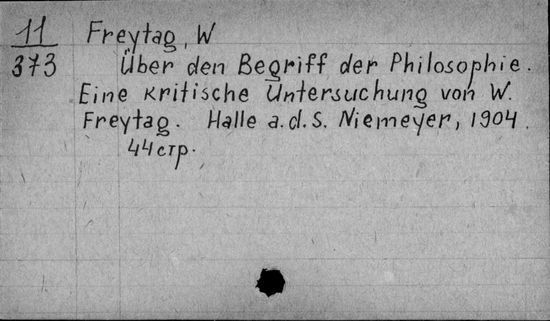 11 Freytag, W
373 Über den Begriff der Philosophie.
Eine kritische Untersuchung von W.
Freytag. Halle a.d.S. Niemeyer, 1904.
44 стр.